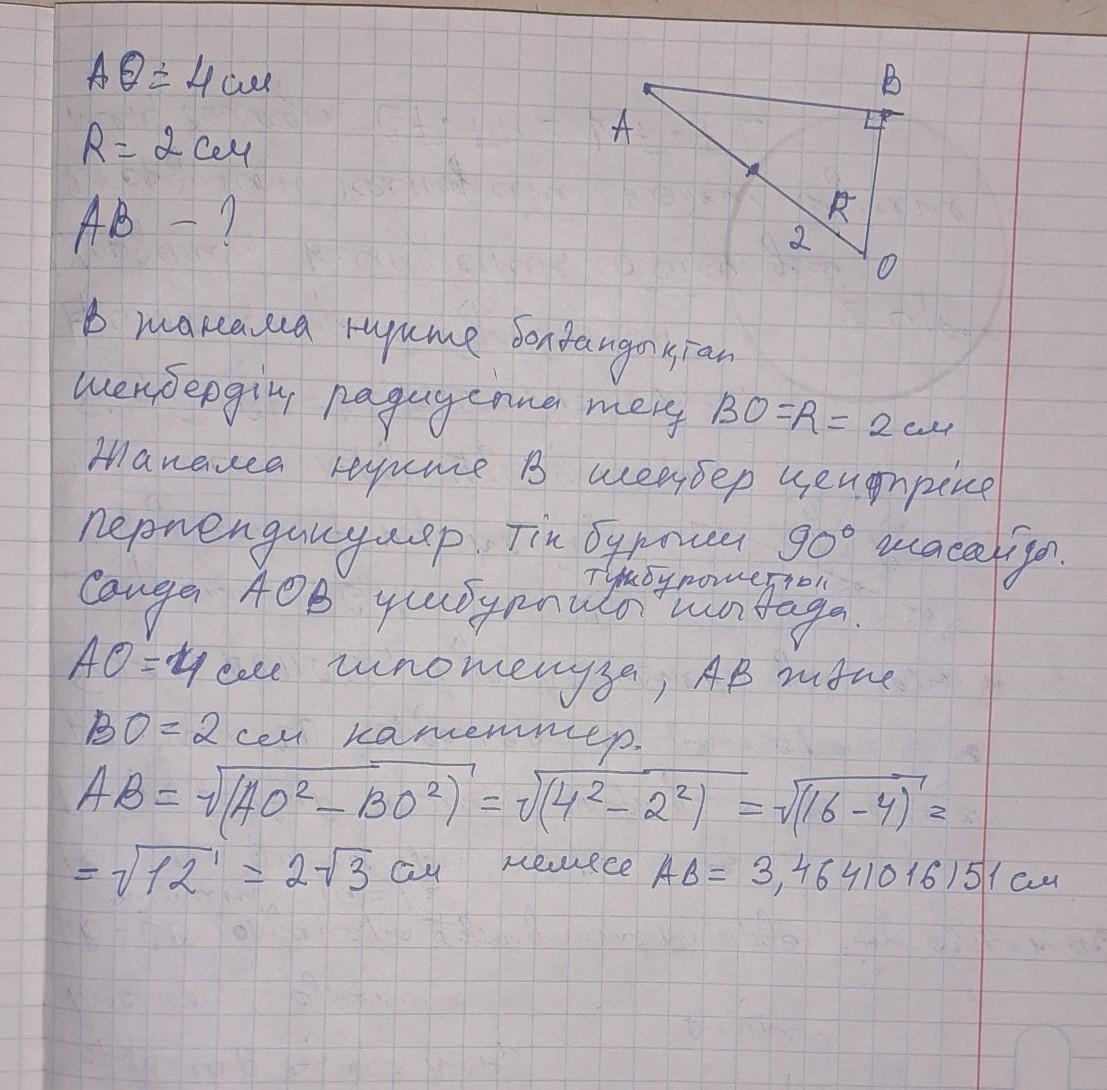 AO = 4 см
R = 2 см
AB - ?
A
B
R
2
O
В жанама нүкте болғандықтан
шеңбердің радиусына тең BO=R= 2 см
Жанама нүкте В шеңбер центріне
перпендикуляр. Тік бұрыш 90° жасайды.
тікбұрыштың
Сонда AOB үшбұрышы шығада.
AO=4 см гипотенуза, AB және
BO=2 см катеттер.
AB = √(AO² - BO²) = √(4² - 2²) = √(16 - 4) =
= √12 = 2√3 см немесе AB = 3,464101615 1 см